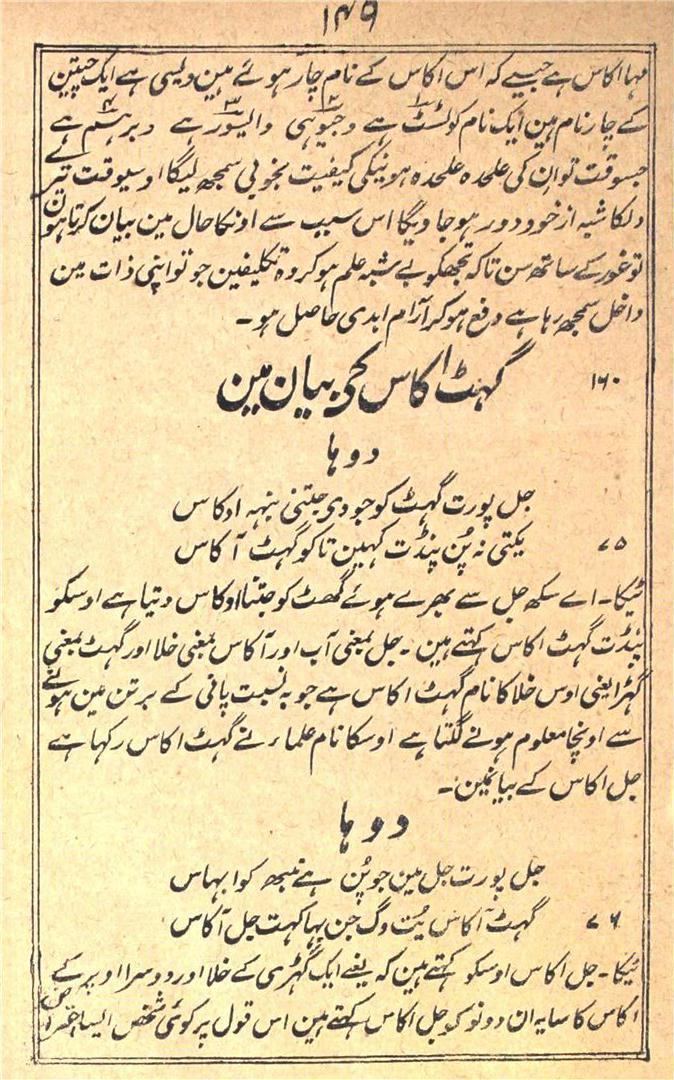 ۱۴۹
مہا اکاس ہے جیسے کہ اس اکاس کے نام چار ہوئے ہین ویسی ہے ایک چیتن
کے چار نام ہین ایک نام کوٹسٹ ہے ۲ وجیوہی ۳ والیسور ہے ۴ وبرہسم ہے
جسوقت تو ان کی علحدہ علحدہ ہونیکی کیفیت بخوبی سمجھ لیگا اوسیوقت تیرے
دلکا شبہ از خود دور ہو جاویگا اس سبب سے اونکا حال مین بیان کرتا ہون
تو غور کے ساتھ سن تاکہ تجھکو بے شبہ علم ہو کر وہ تکلیفین جو تو اپنی ذات مین
داخل سمجھ رہا ہے دفع ہو کر آرام ابدی حاصل ہو۔
۱۶۰ گہٹ اکاس کی بیان مین
دوہا
جل پورت گہٹ کو جو دی جتنی بنہہ ادکاس
۷۵ یکتی نہ پُن پنڈت کہین تاکو گہٹ آکاس
ٹیکا۔ اے سکھ جل سے بھرے ہوئے گھٹ کو جتنا اوکاس دیتا ہے اوسکو
پنڈت گہٹ اکاس کہتے ہین۔ جل بمعنی آب اور آکاس بمعنی خلا اور گہٹ بمعنی
گہڑا یعنی اوس خلا کا نام گہٹ اکاس ہے جو بہ نسبت پانی کے برتن مین ہونے
سے اونچا معلوم ہونے لگتا ہے اوسکا نام علماء نے گہٹ اکاس رکہا ہے
جل اکاس کے بیانمین۔
دوہا
جل پورت جل مین جو پُن ہے نبھ کو ابہاس
۷۶ گہٹ آکاس یُت وگ جن بہا کہت جل آکاس
ٹیکا۔ جل اکاس اوسکو کہتے ہین کہ یعنے ایک گہڑی کے خلا اور دوسرا اوپر کے
اکاس کا سایہ ان دونو کو جل اکاس کہتے ہین اس قول پر کوئی شخص ایسا اعتراض